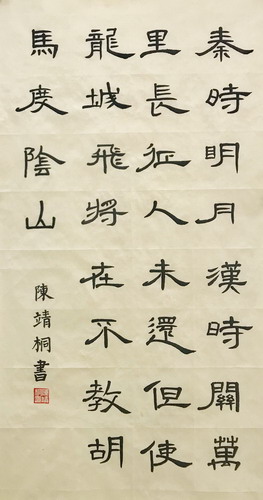 秦時明月漢時關萬
里長征人未還但使
龍城飛將在不教胡
馬度陰山
陳靖桐書